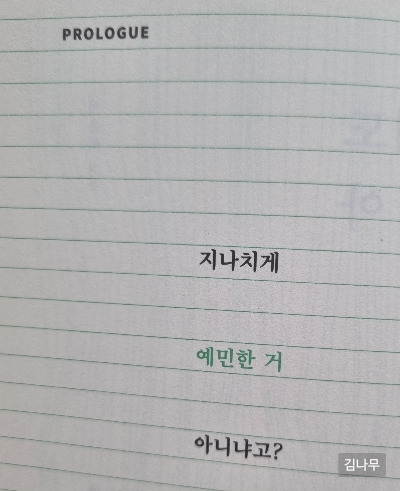 PROLOGUE
지나치게
예민한 거
아니냐고?
김나무